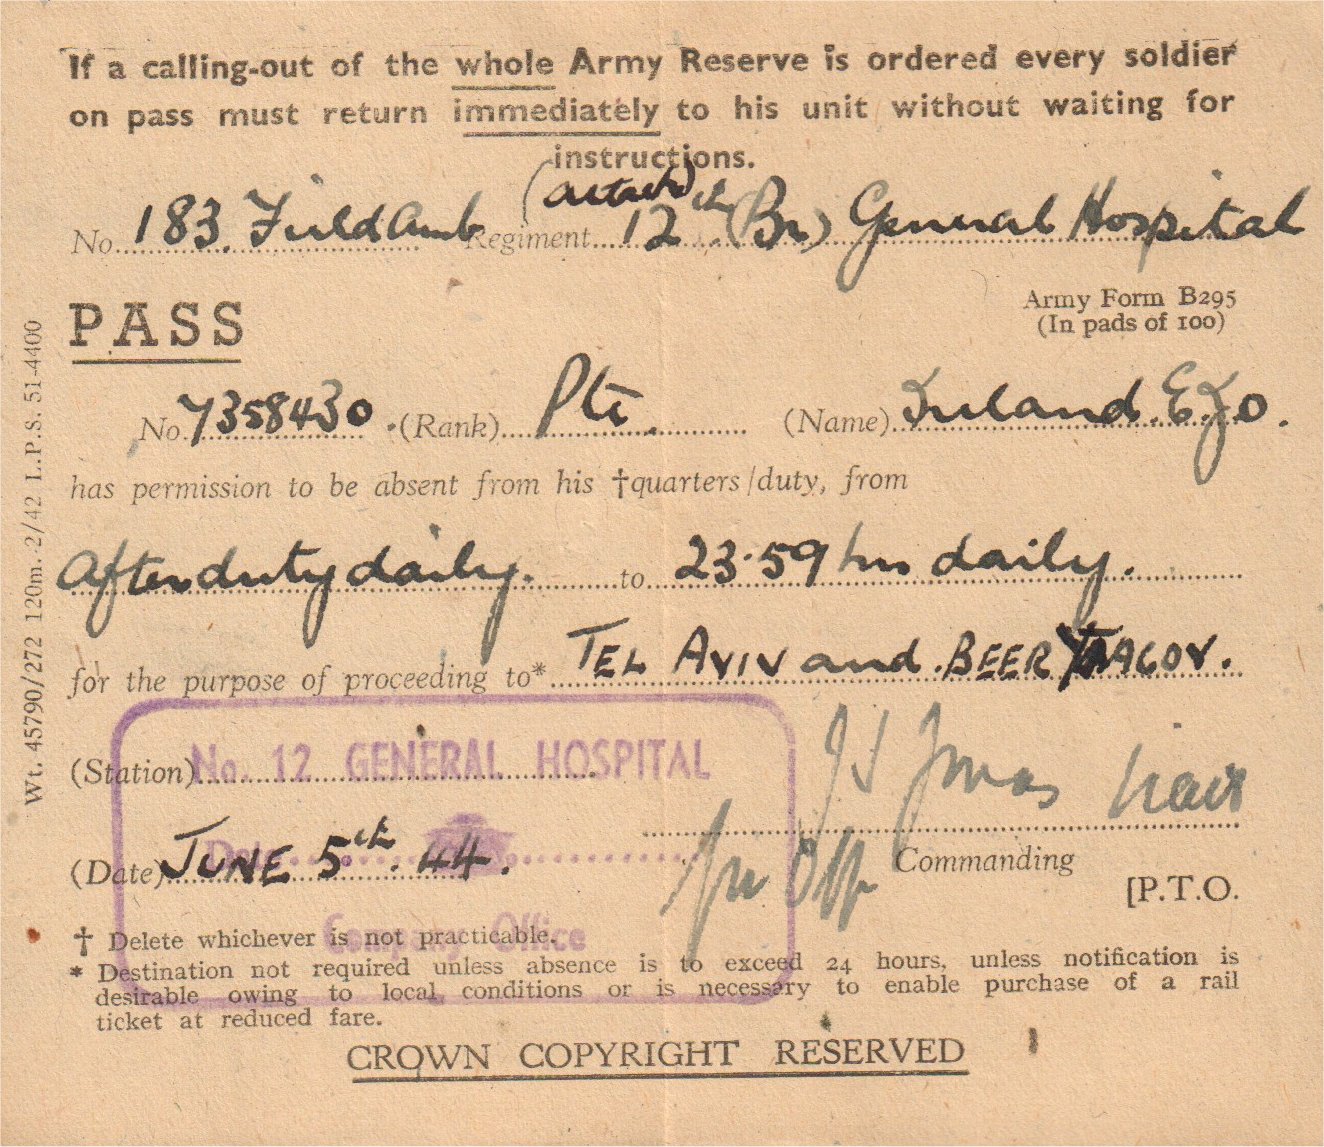 If a calling-out of the whole Army Reserve is ordered every soldier
on pass must return immediately to his unit without waiting for
instructions.
(attach)
No. 183. Field Amb Regiment 12th (Br) General Hospital
PASS
Army Form B295
(In pads of 100)
No. 7358430. (Rank) Pte. (Name) Ireland. E.J.O.
has permission to be absent from his †quarters/duty, from
After duty daily. to 23·59 hrs daily.
for the purpose of proceeding to* TEL AVIV and BEER YAACOV.
(Station) No. 12 GENERAL HOSPITAL
(Date) JUNE 5th. 44.
Date
Commanding
[P.T.O.
Company Office
† Delete whichever is not practicable.
* Destination not required unless absence is to exceed 24 hours, unless notification is
desirable owing to local conditions or is necessary to enable purchase of a rail
ticket at reduced fare.
CROWN COPYRIGHT RESERVED
Wt. 45790/272 120m. 2/42 L.P.S. 51-4400